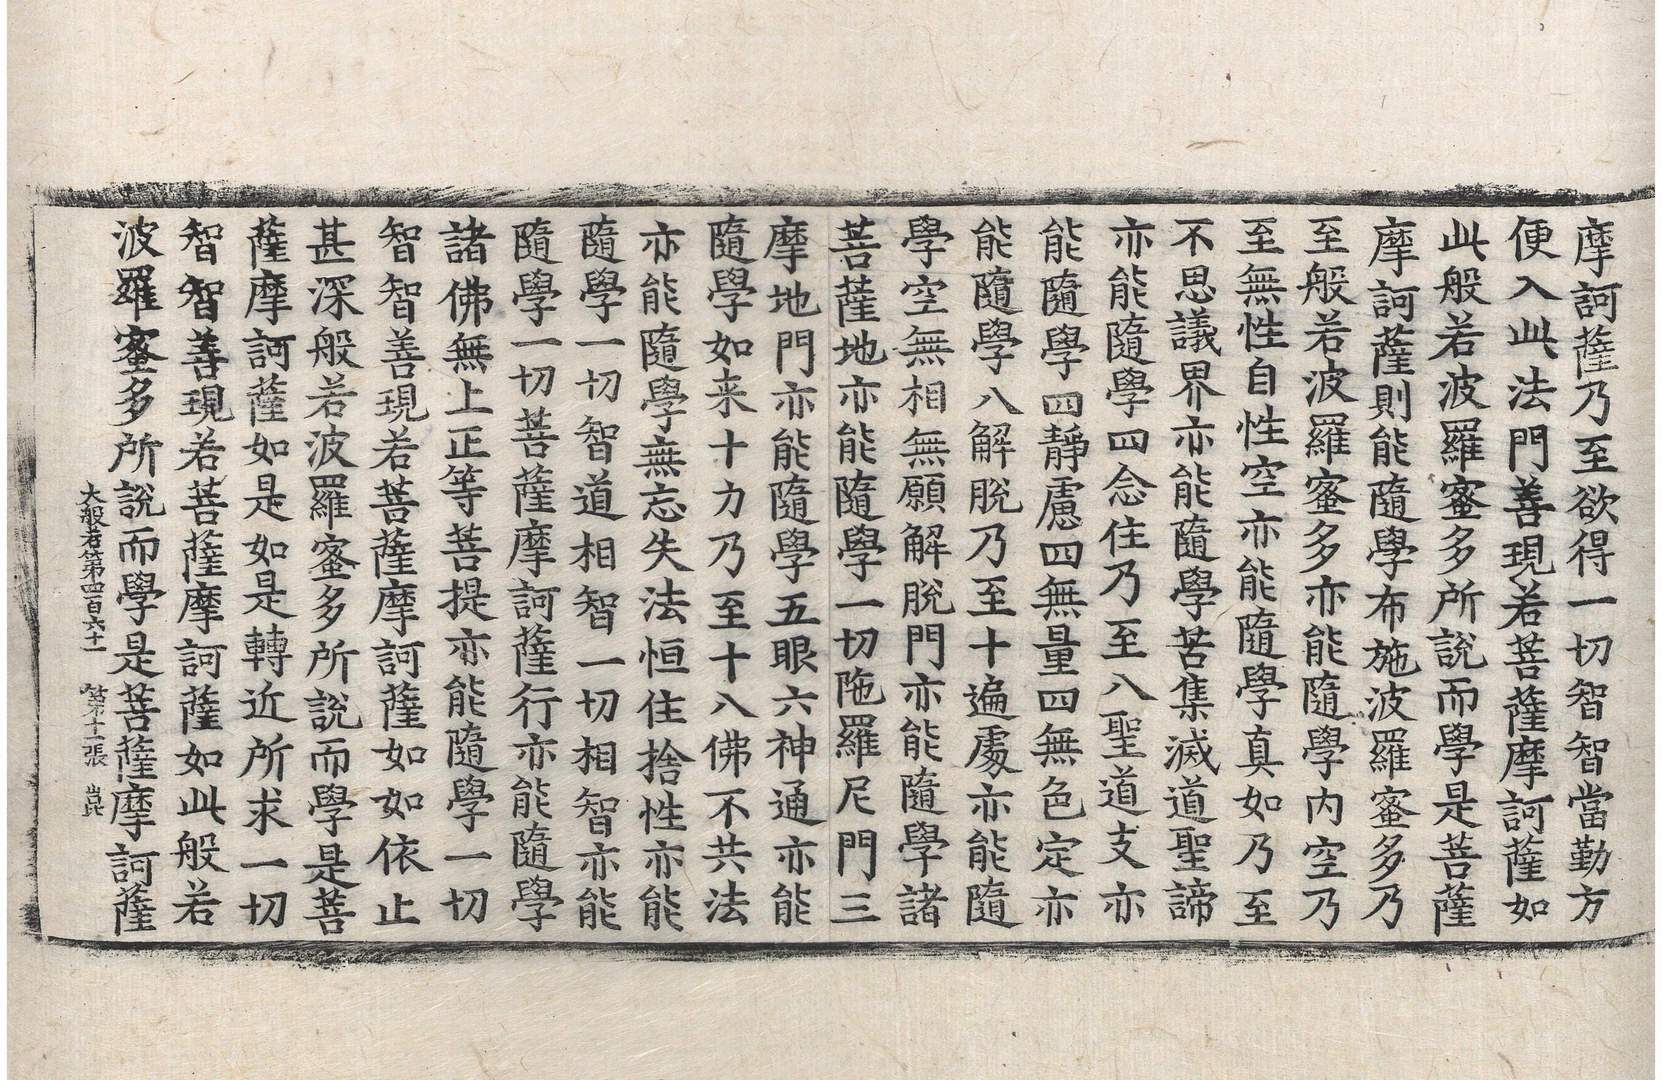 摩訶薩乃至欲得一切智智當勤方
便入此法門善現若菩薩摩訶薩如
此般若波羅蜜多所說而學是菩薩
摩訶薩則能隨學布施波羅蜜多乃
至般若波羅蜜多亦能隨學內空乃
至無性自性空亦能隨學真如乃至
不思議界亦能隨學苦集滅道聖諦
亦能隨學四念住乃至八聖道支亦
能隨學四靜慮四無量四無色定亦
能隨學八解脫乃至十遍處亦能隨
學空無相無願解脫門亦能隨學諸
菩薩地亦能隨學一切陁羅尼門三
摩地門亦能隨學五眼六神通亦能
隨學如来十力乃至十八佛不共法
亦能隨學無忘失法恒住捨性亦能
隨學一切智道相智一切相智亦能
隨學一切菩薩摩訶薩行亦能隨學
諸佛無上正等菩提亦能隨學一切
智智善現若菩薩摩訶薩如如依止
甚深般若波羅蜜多所說而學是菩
薩摩訶薩如是如是轉近所求一切
智智善現若菩薩摩訶薩如此般若
波羅蜜多所說而學是菩薩摩訶薩
大般若第四百六十一 第十一張 崑